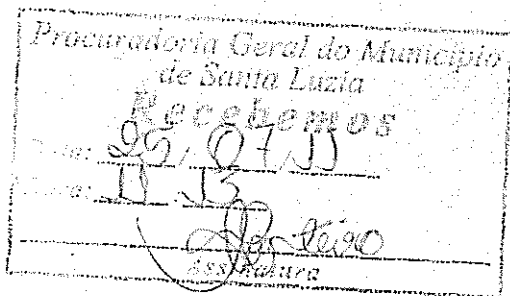 Procuradoria Geral do Município
de Santa Luzia
Recebemos
Data: 25/07/11
Hora: 11:13
Assinatura